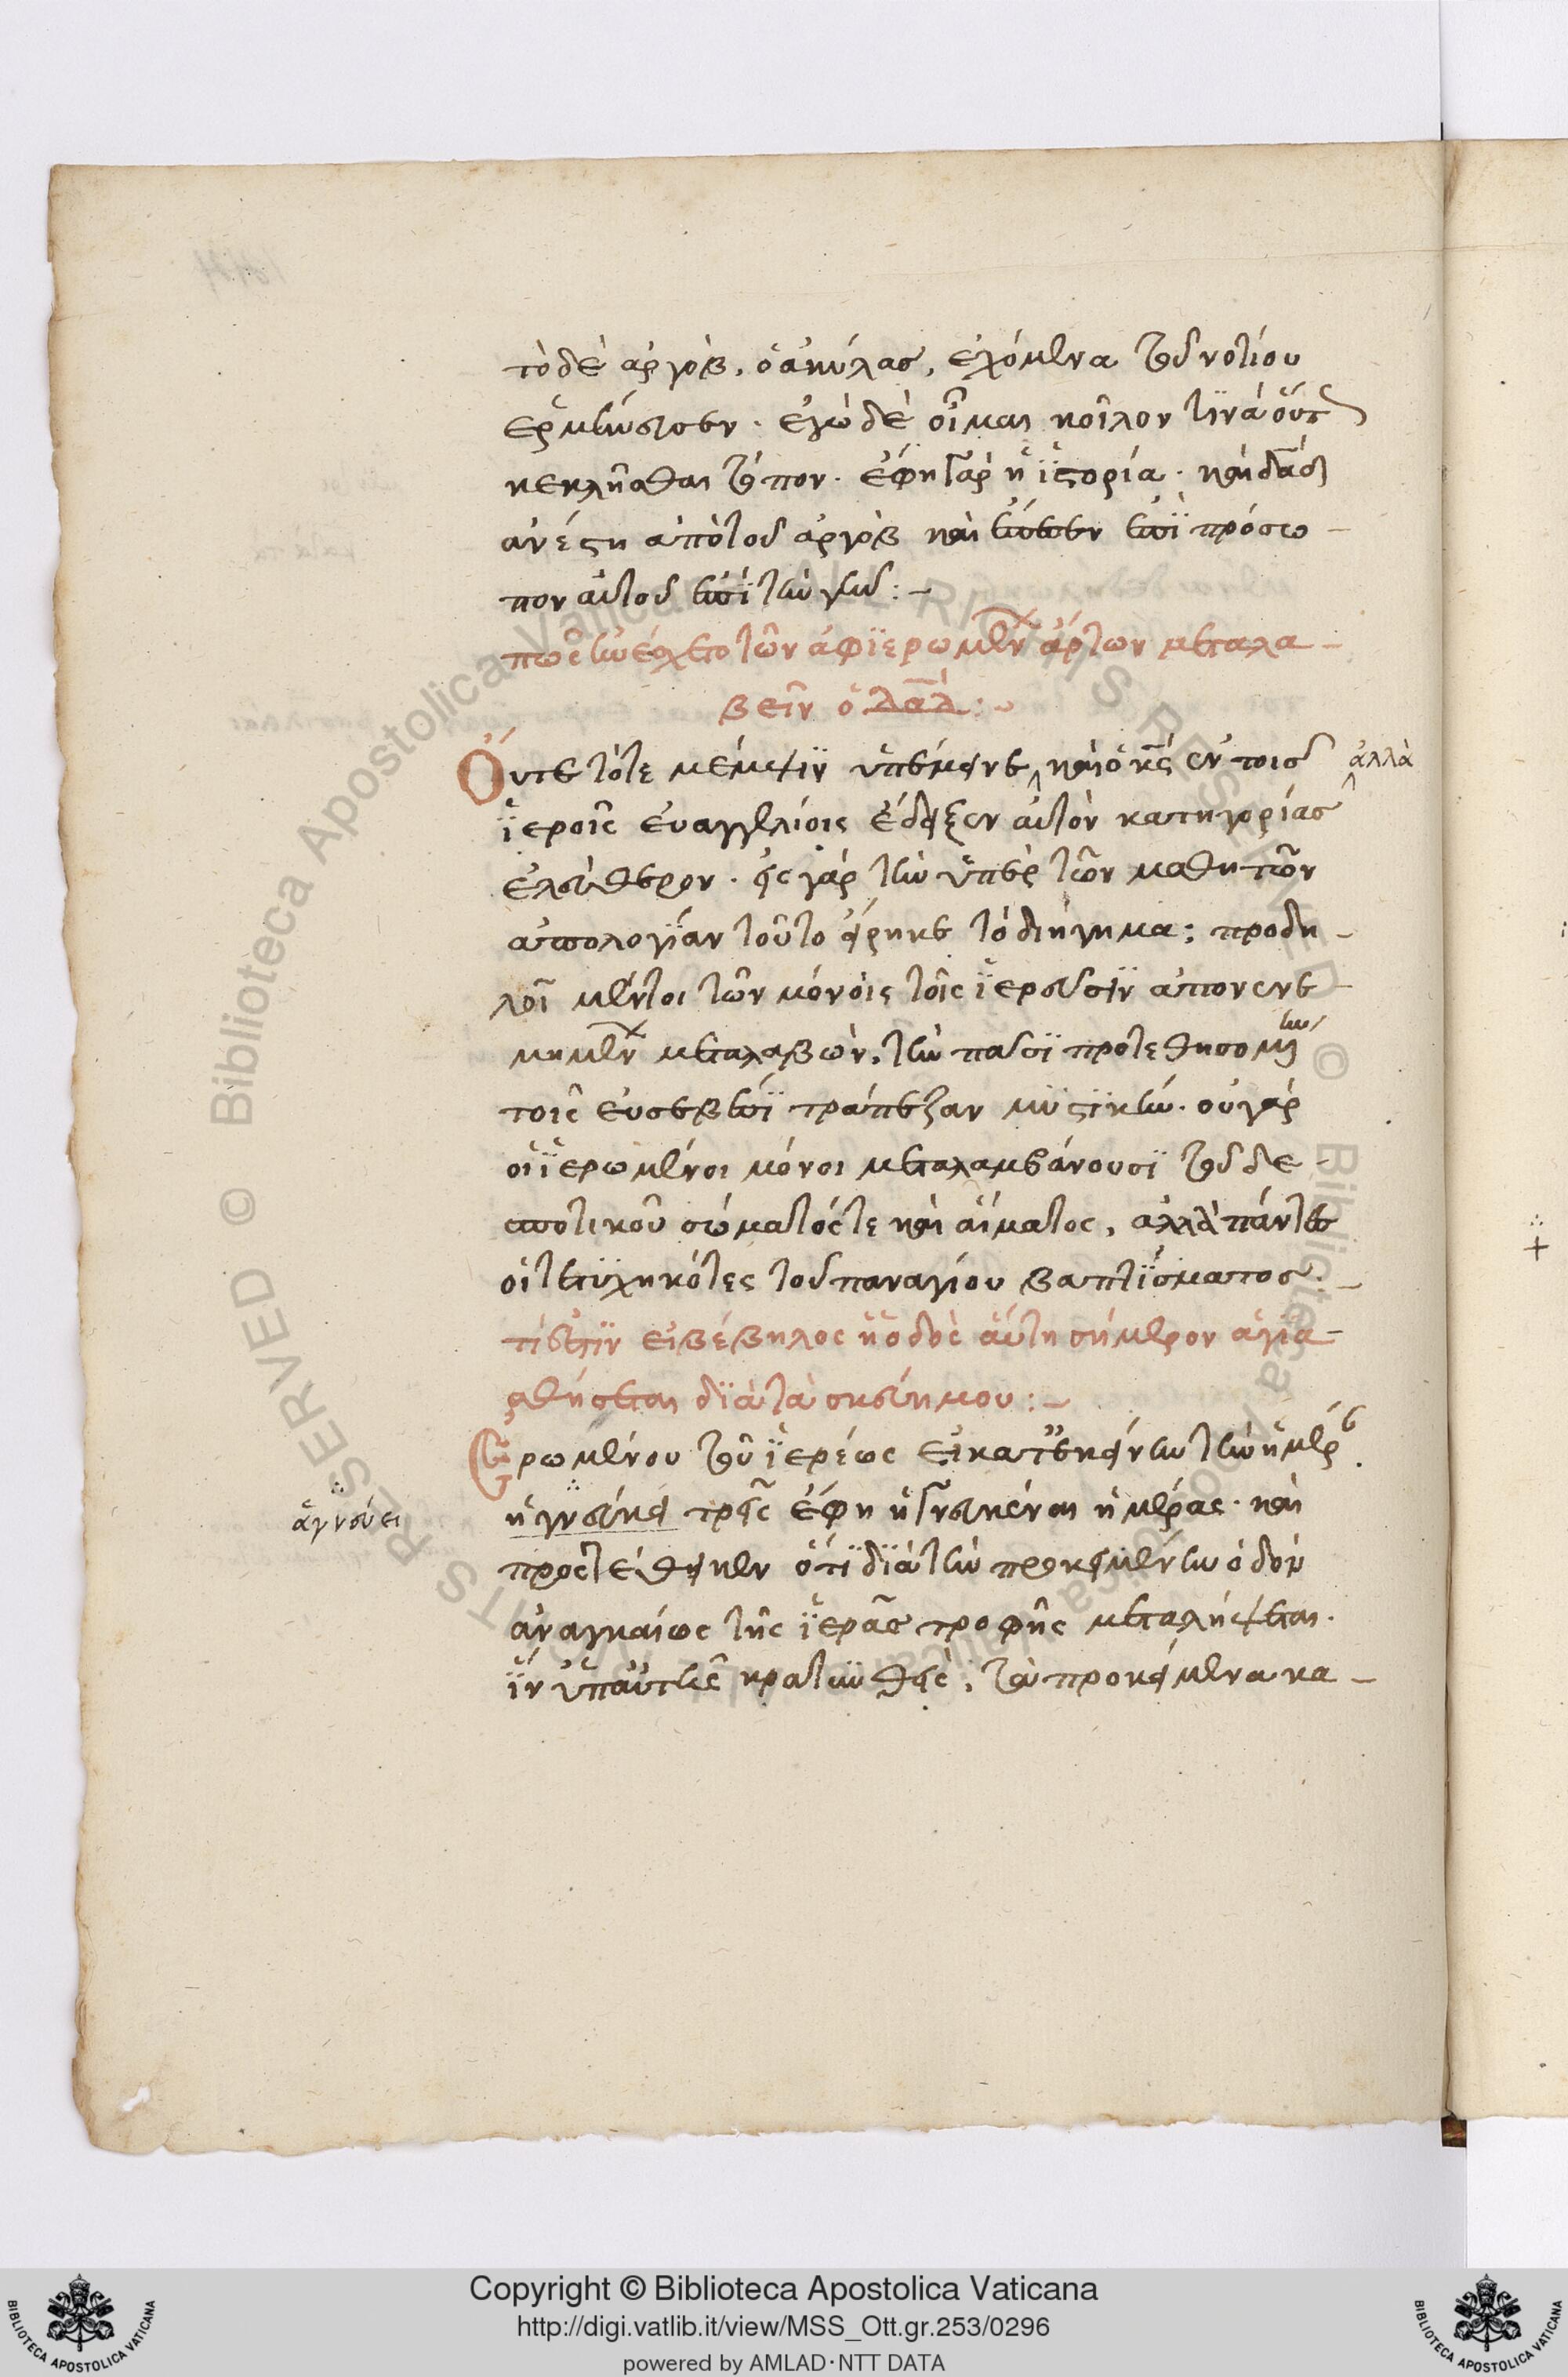 τὸ δὲ ἀργὸβ, ὁ ἀκύλας, ἐχόμενα τοῦ νοτίου
ἑρμήνευσεν. ἐγὼ δὲ οἶμαι κοῖλον τινὰ οὕτως
κεκλῆσθαι τόπον. ἔφη γὰρ ἡ ἱστορία. καὶ δαδ
ἀνέστη ἀπὸ τοῦ ἀργὸβ καὶ ἔπεσεν ἐπὶ πρόσω-
πον αὐτοῦ ἐπὶ τὴν γῆν:-
πῶς ἠνέσχετο τῶν ἀφϊερωμένων ἄρτων μεταλα-
βεῖν ὁ δαδ:-
Οὔτε τότε μέμψιν ὑπέμεινε καὶ ὁ κς ἐν τοῖς ἀλλὰ
ἱεροῖς εὐαγγελίοις ἔδειξεν αὐτὸν κατηγορίας
ἐλεύθερον. εἰς γὰρ τὴν ὑπὲρ τῶν μαθητῶν
ἀπολογίαν τοῦτο εἴρηκε τὸ διήγημα; προδη-
λοῖ μέντοι τῶν μόνοις τοῖς ἱερεῦσιν ἀπονενε-
μημένων μεταλαβὼν, τὴν πᾶσι προτεθησομένην
τοῖς εὐσεβέσι τράπεζαν μυστικήν. οὐ γὰρ
οἱ ἱερωμένοι μόνοι μεταλαμβάνουσι τοῦ δε-
σποτικοῦ σώματός τε καὶ αἵματος, ἀλλὰ πάντες
οἱ τετυχηκότες τοῦ παναγίου βαπτίσματος.-
τί ἐστιν εἰ βέβηλος ἡ ὁδὸς αὕτη σήμερον ἁγια-
σθήσεται διὰ τὰ σκεύη μου:-
Ἐρωμένου τοῦ ἱερέως εἰ κατ' ἐκείνην τὴν ἡμέραν
ἥγνευκε τρεῖς ἔφη ἡγνευκέναι ἡμέρας. καὶ
ἁγνεύει
προστέθεικεν ὅτι διὰ τὴν προκειμένην ὁδὸν
ἀναγκαίως τῆς ἱερᾶς τροφῆς μεταλήψεται.
ἵν' ὑπ' αὐτῆς κρατυνθεὶς, τὰ προκείμενα κα-
Copyright © Biblioteca Apostolica Vaticana
http://digi.vatlib.it/view/MSS_Ott.gr.253/0296
powered by AMLAD·NTT DATA